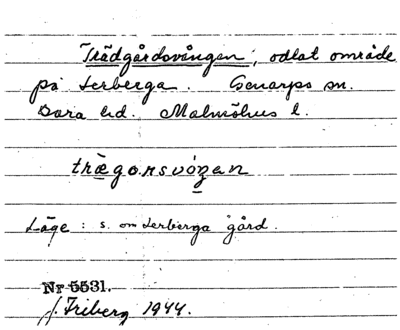 Trädgårdsvången, odlat område
på Lerberga. Genarps sn.
Bara hd. Malmöhus l.
trægorsvoŋan
Läge : s. om Lerberga gård.
Nr 5531.
J. Friberg 1944.